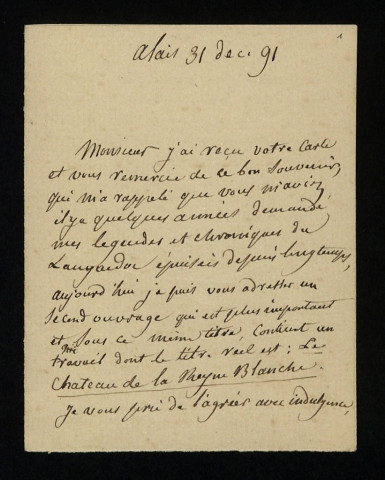 1
Alais 31 dec. 91
Monsieur j'ai reçu votre Carte
et vous remercie de ce bon Souvenir,
qui m'a rappelé que vous m'aviez
il y a quelques années demandé
mes legendes et chroniques du
Languedoc épuisés depuis longtemps,
aujourd'hui je puis vous adresser un
Second ouvrage qui est plus important
et sous ce même titre, Contient un
travail dont le titre réel est : Le
Chateau de la Reyne Blanche.
Je vous prie de l'agréer avec indulgence,